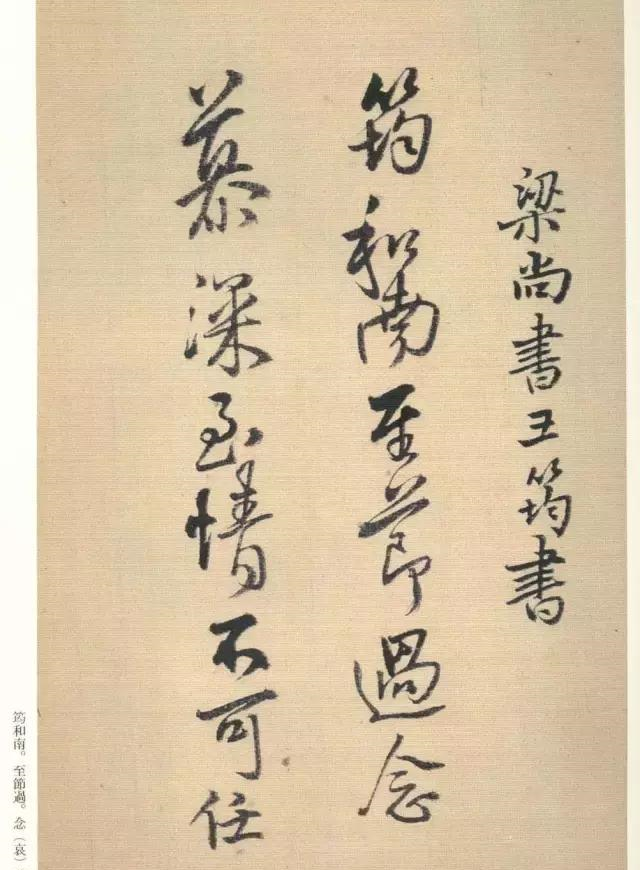 梁尚書王筠書
筠和南至節過念
慕深至情不可任
筠和南。至節過。念（哀）